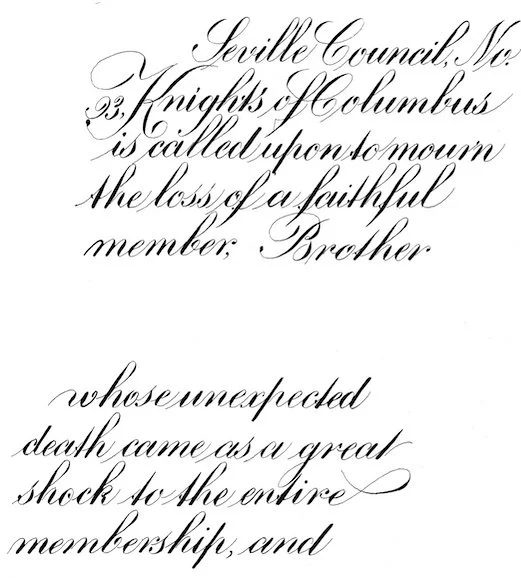 Seville Council, No.
93, Knights of Columbus
is called upon to mourn
the loss of a faithful
member, Brother
whose unexpected
death came as a great
shock to the entire
membership, and